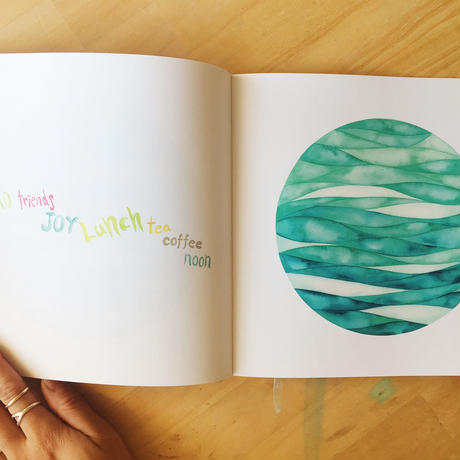 friends
JOY
Lunch
tea
coffee
noon